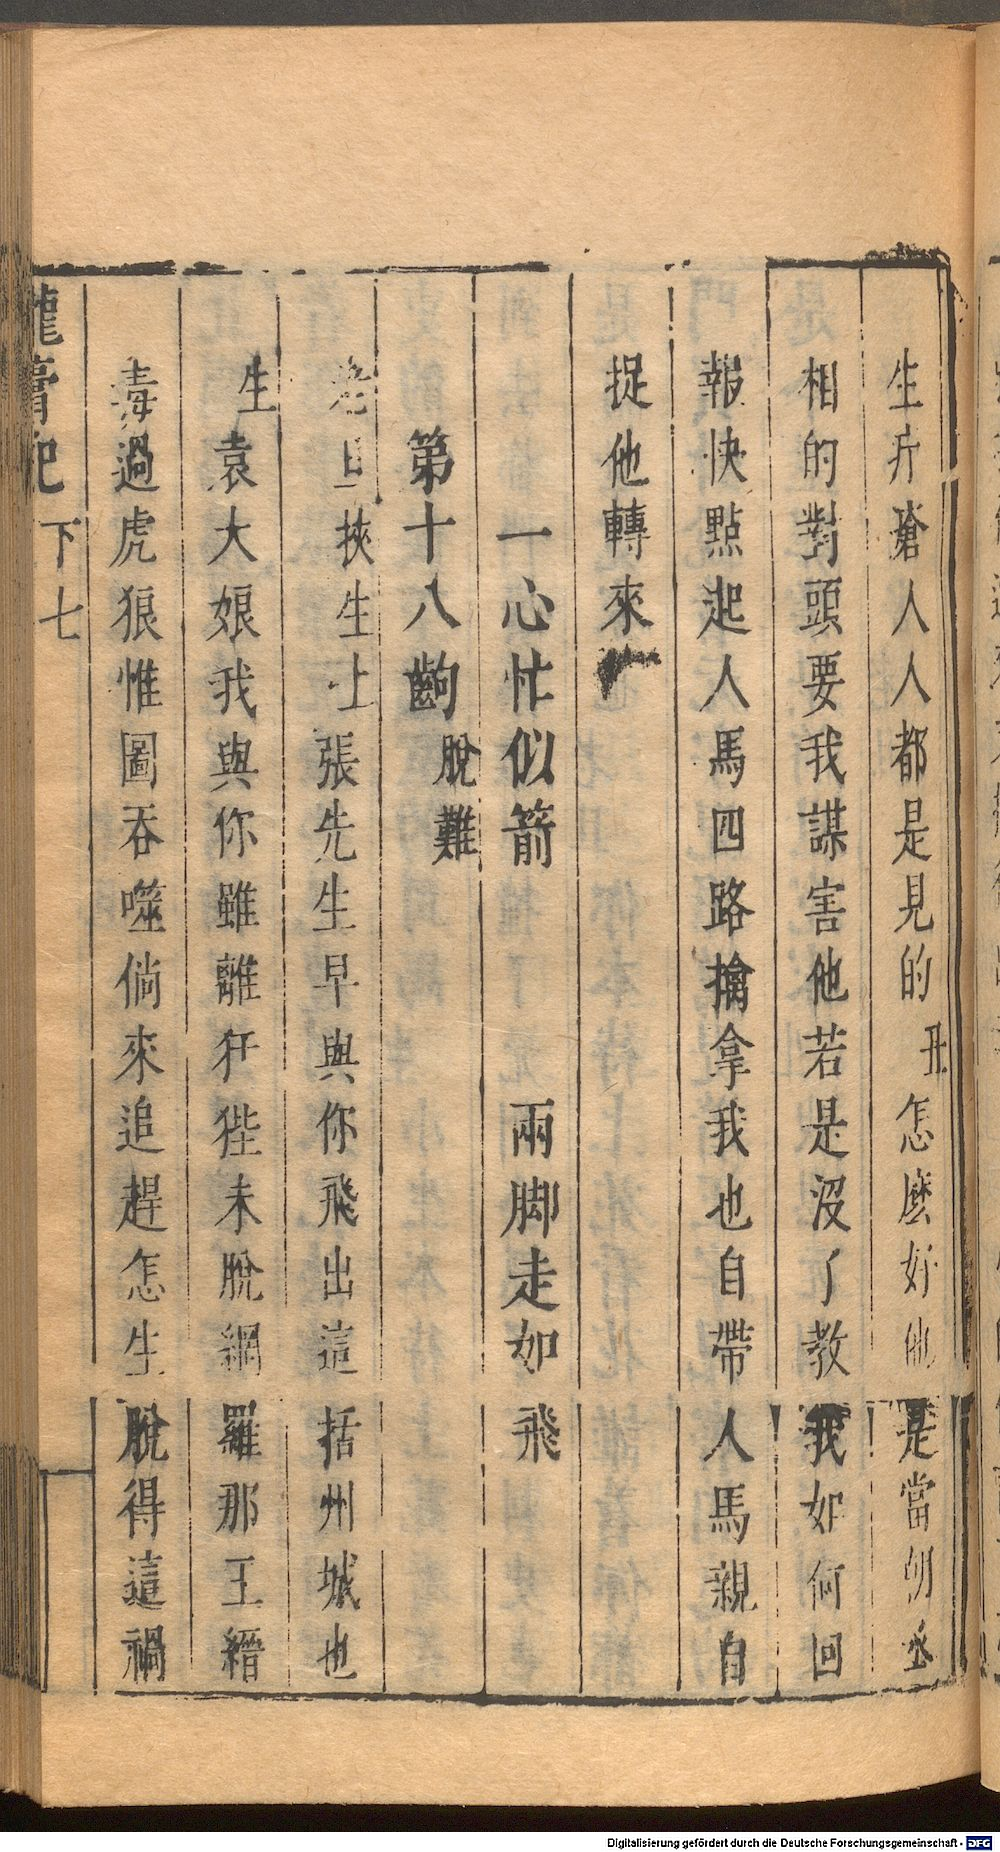 生斤瘡人人都是見的丑怎麼好他是當朝丞
相的對頭要我謀害他若是沒了教我如何回
報快點起人馬四路擒拿我也自帶人馬親自
捉他轉來
一心忙似箭 兩脚走如飛
第十八齣 脫難
老旦挾生上張先生早與你飛出這括州城也
生袁大娘我與你雖離狂狴未脫網羅那王縉
毒過虎狼惟圖吞噬倘來追趕怎生脫得這禍
龍膏記 下 七
Digitalisierung gefördert durch die Deutsche Forschungsgemeinschaft - DFG